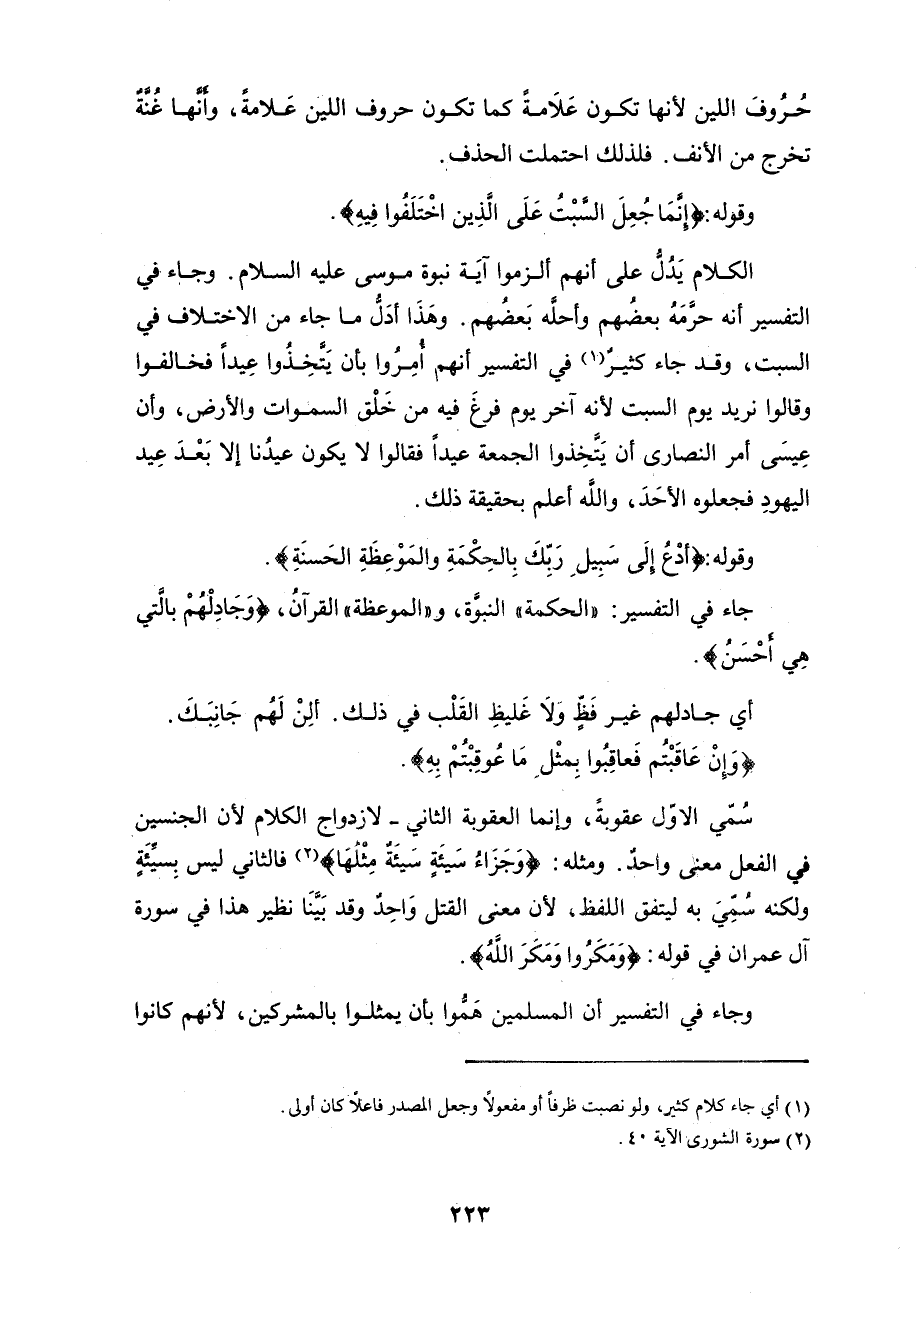 حُرُوفَ اللين لأنها تكون عَلَامةً كما تكون حروف اللين عَلامةً، وأَنَّها غُنَّةٌ
تخرج من الأنف. فلذلك احتملت الحذف.
وقوله: ﴿إِنَّمَا جُعِلَ السَّبْتُ عَلَى الَّذِين اخْتَلَفُوا فِيهِ﴾.
الكلام يَدُلُّ على أنهم ألزموا آيَة نبوة موسى عليه السلام. وجاء في
التفسير أنه حرَّمَهُ بعضُهم وأحلَّه بَعضُهم. وهَذَا أدَلُّ ما جاء من الاختلاف في
السبت، وقد جاء كثيرٌ(١) في التفسير أنهم أُمِرُوا بأن يَتَّخِذُوا عِيداً فخالفوا
وقالوا نريد يوم السبت لأنه آخر يوم فرغَ فيه من خَلْق السموات والأرض، وأن
عِيسَى أمر النصارى أن يَتَّخِذوا الجمعة عيداً فقالوا لا يكون عيدُنا إلا بَعْدَ عِيد
اليهودِ فجعلوه الأحَدَ، واللَّه أعلم بحقيقة ذلك.
وقوله: ﴿أدْعُ إِلَى سَبِيلِ رَبِّكَ بِالحِكْمَةِ والمَوْعِظَةِ الحَسنَةِ﴾.
جاء في التفسير: «الحكمة» النبوَّة، و«الموعظة» القرآنُ، ﴿وَجَادِلْهُمْ بالَّتي
هِي أَحْسَنُ﴾.
أي جادلهم غير فَظٍّ وَلَا غَليظِ القَلْب في ذلك. ألِنْ لَهُم جَانِبَكَ.
﴿وَإِنْ عَاقَبْتُم فَعاقِبُوا بِمثْلِ مَا عُوقِبْتُمْ بِهِ﴾.
سُمّي الاوّل عقوبةً، وإنما العقوبة الثاني ـ لازدواج الكلام لأن الجنسين
في الفعل معنى واحدٌ. ومثله: ﴿وَجَزَاءُ سَيئَةٍ سَيئَةٌ مِثْلُهَا﴾(٢) فالثاني ليس بِسيِّئَةٍ
ولكنه سُمِّيَ به ليتفق اللفظ، لأن معنى القتل وَاحِدٌ وقد بَيَّنَا نظير هذا في سورة
آل عمران في قوله: ﴿وَمَكَرُوا وَمَكَرَ اللَّهُ﴾.
وجاء في التفسير أن المسلمين هَمُّوا بأن يمثلوا بالمشركين، لأنهم كانوا
(١) أي جاء كلام كثير، ولو نصبت ظرفاً أو مفعولًا وجعل المصدر فاعلًا كان أولى.
(٢) سورة الشورى الآية ٤٠.
٢٢٣